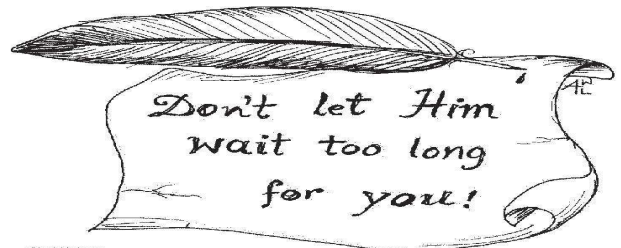 Don't let Him
wait too long
for you!